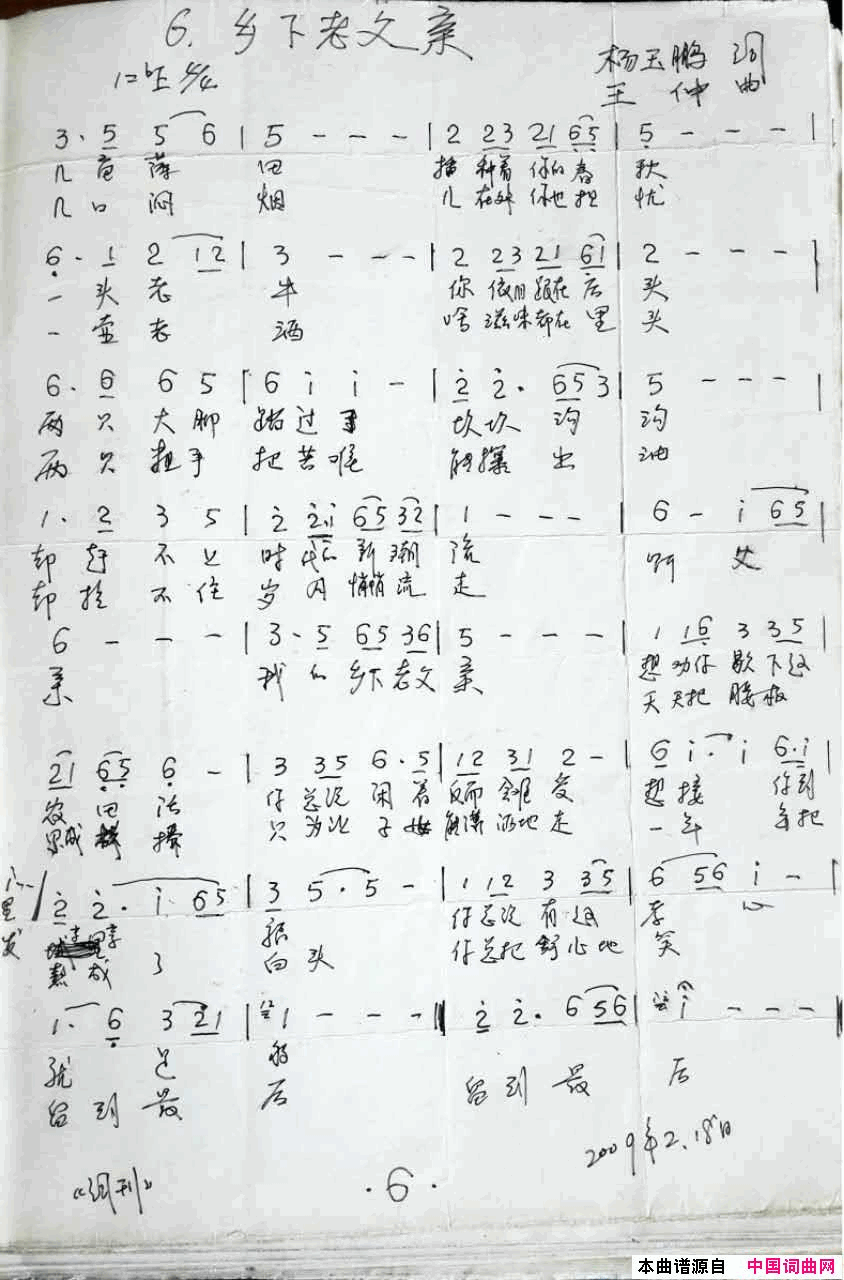 6. 乡下老父亲
杨玉鹏 词
1=♭E 4/4
王 仲 曲
3· 5 5 6 | 5 - - - | 2 23 21 65 | 5 - - - |
几 亩 薄 田 播 种着 你的 春 秋
几 口 闷 烟 儿 在外 你也 担 忧
6· 1 2 12 | 3 - - - | 2 23 21 61 | 2 - - - |
一 头 老 牛 你 依旧 跟在 后 头
一 壶 老 酒 啥 滋味 都在 里 头
6· 6 6 5 | 6 i i - | 2 2· 653 | 5 - - - |
两 只 大 脚 踏 过 了 坎 坎 沟 沟
两 只 粗 手 把 苦 难 能 攥 出 油
1· 2 3 5 | 2 2i 65 32 | 1 - - - | 6 - i 65 |
却 赶 不 上 时 代的 新 潮 流 啊 父
却 拴 不 住 岁 月 悄悄 流 走
6 - - - | 3· 5 65 36 | 5 - - - | 1 16 3 35 |
亲 我 的 乡下 老父 亲 想 劝你 歇 下这
天 天把 腰板
21 65 6 - | 3 35 6· 5 | 12 31 2 - | 6 i· i 6·i |
农 田 活 你 总说 闲 着 反而 会难 受 想 接 你到
只 为让 子 女 能潇 洒地 走 一 年 年把
i -- / 2 2· i 65 | 3 5· 5 - | 1 12 3 35 | 6 56 i - |
里 享 你总说 有这 孝 心
发 熬 成 了 白 头 你总把 舒心地 笑
1· 6 3 21 | 1 - - - || 2 2· 6 56 | i - - - ||
就 是 的
留 到 最 后 留 到 最 后
2009年2.18日
《词刊》
·6·
本曲谱源自 中国词曲网